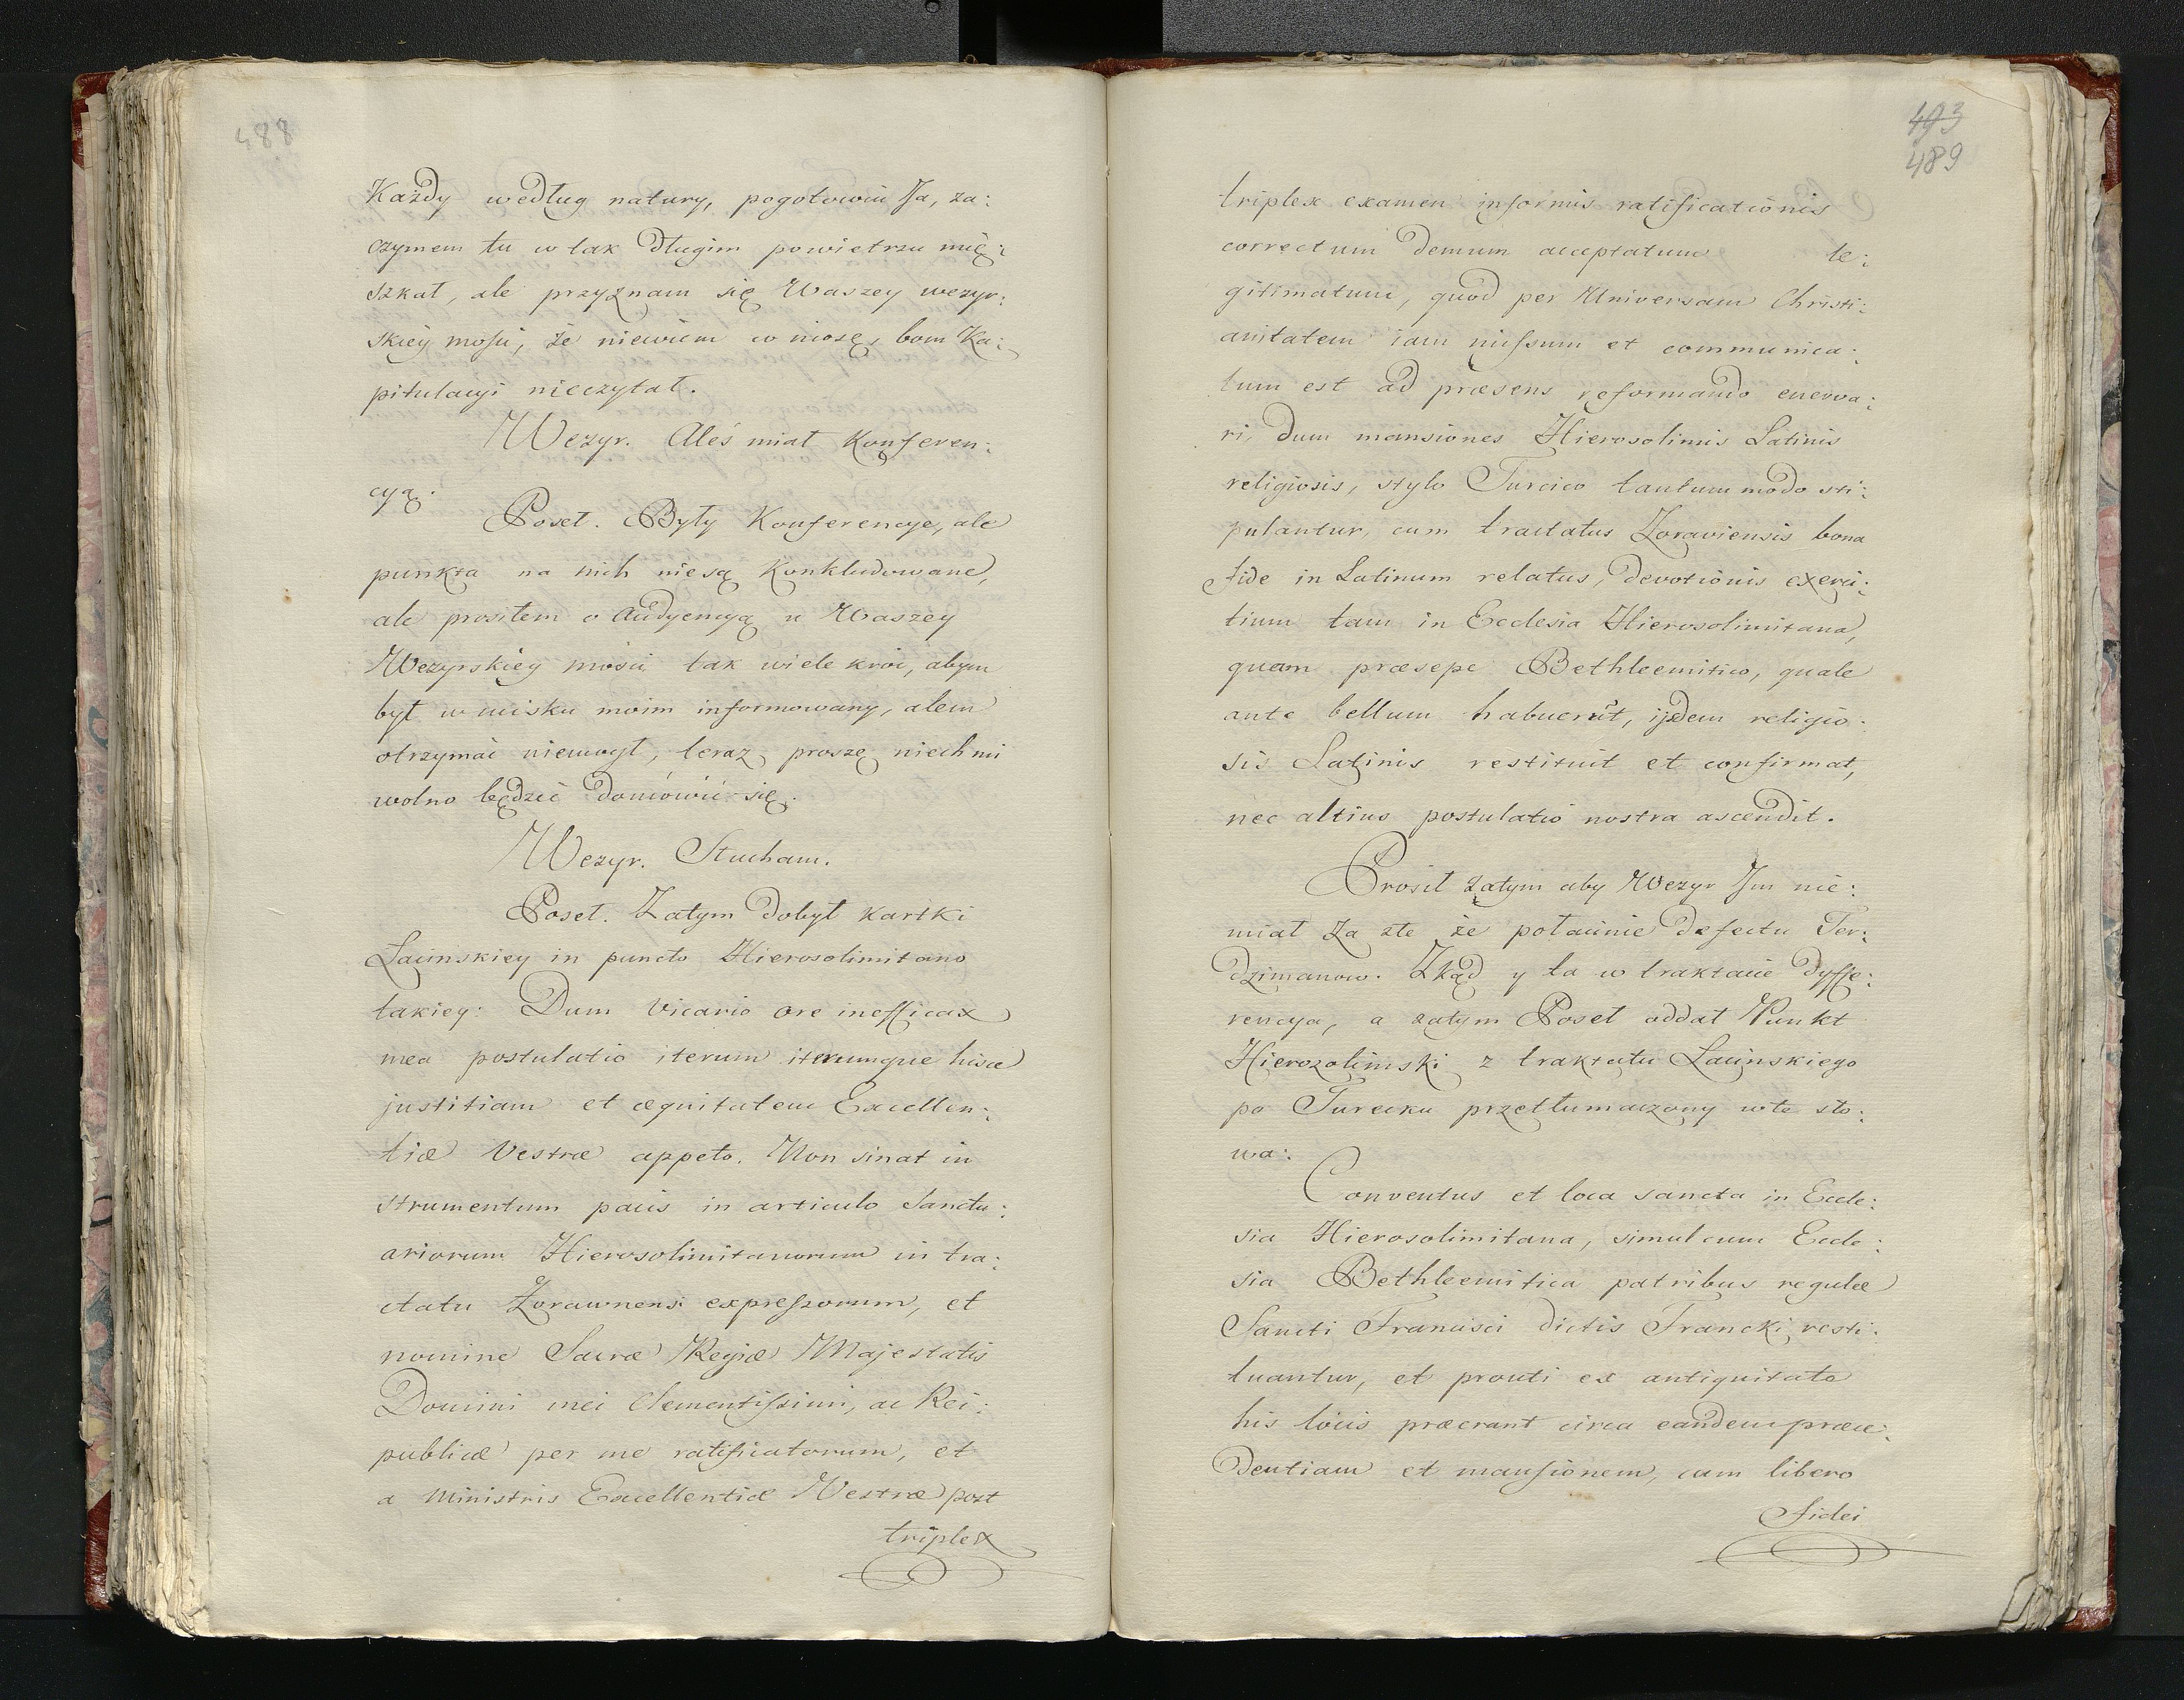 488
Każdy według natury, pogotowiu Ja, za:
czymem tu w tak długim powietrzu mię:
szkał, ale przyznam się Waszey wezyr:
skiey mości, że niewiem co niosę, bom Ka:
pitulacyi nieczytał.
Wezyr. Aleś miał Konferen:
cyą.
Poseł. Były Konferencye, ale
punkta na nich niesą Konkludowane,
ale prosiłem o Audyencyą u Waszey
Wezyrskiey mości tak wiele kroć, abym
był w ucisku moim informowany, alem
otrzymać niemógł, teraz proszę niech mi
wolno będzie domówić się.
Wezyr. Słucham.
Poseł. Zatym dobył kartki
Łacinskiey in puncto Hierosolimitano
takiey: Dum Vicario ore inefficax
mea postulatio iterum iterumque hisce
justitiam et æquitatem Excellen:
tiæ Vestræ appeto. Non sinat in
strumentum pacis in articulo Sanctu:
ariorum Hierosolimitanorum in tra:
ctatu Zorawnensi expressorum, et
nomine Sacræ Regiæ Majestatis
Domini mei Clementissimi, ac Rei:
publicæ per me ratificatorum, et
a Ministris Excellentiæ Vestræ post
triplex
493
489
triplex examen informis ratificationis
correctum demum acceptatum le:
gitimatum, quod per Universam Christi:
anitatem iam missum et communica:
tum est ad præsens reformando enerva:
ri, dum mansiones Hierosolimis Latinis
religiosis, stylo Turcico tantummodo sti:
pulantur, cum tractatus Zoraviensis bona
fide in Latinum relatus, devotionis exerci:
tium tam in Ecclesia Hierosolimitana,
quam præsepe Bethleemitico, quale
ante bellum habuerũt, ijsdem religio:
sis Latinis restituit et confirmat,
nec altius postulatio nostra ascendit.
Prosił zatym aby Wezyr Jm nie:
miał za złe że połacinie defectu Ter:
dzimanow. Zkąd y ta w traktacie dyffe:
rencya, a zatym Poseł oddał Punkt
Hierozolimski z traktatu Łacinskiego
po Turecku przetłumaczony wte sło:
wa:
Conventus et loca sancta in Eccle:
sia Hierosolimitana, simul cum Eccle:
sia Bethleemitica patribus regulæ
Sancti Francisci dictis Francki resti:
tuantur, et prouti ex antiquitate
his locis præerant circa eandem præce:
dentiam et mansionem, cum libero
fidei